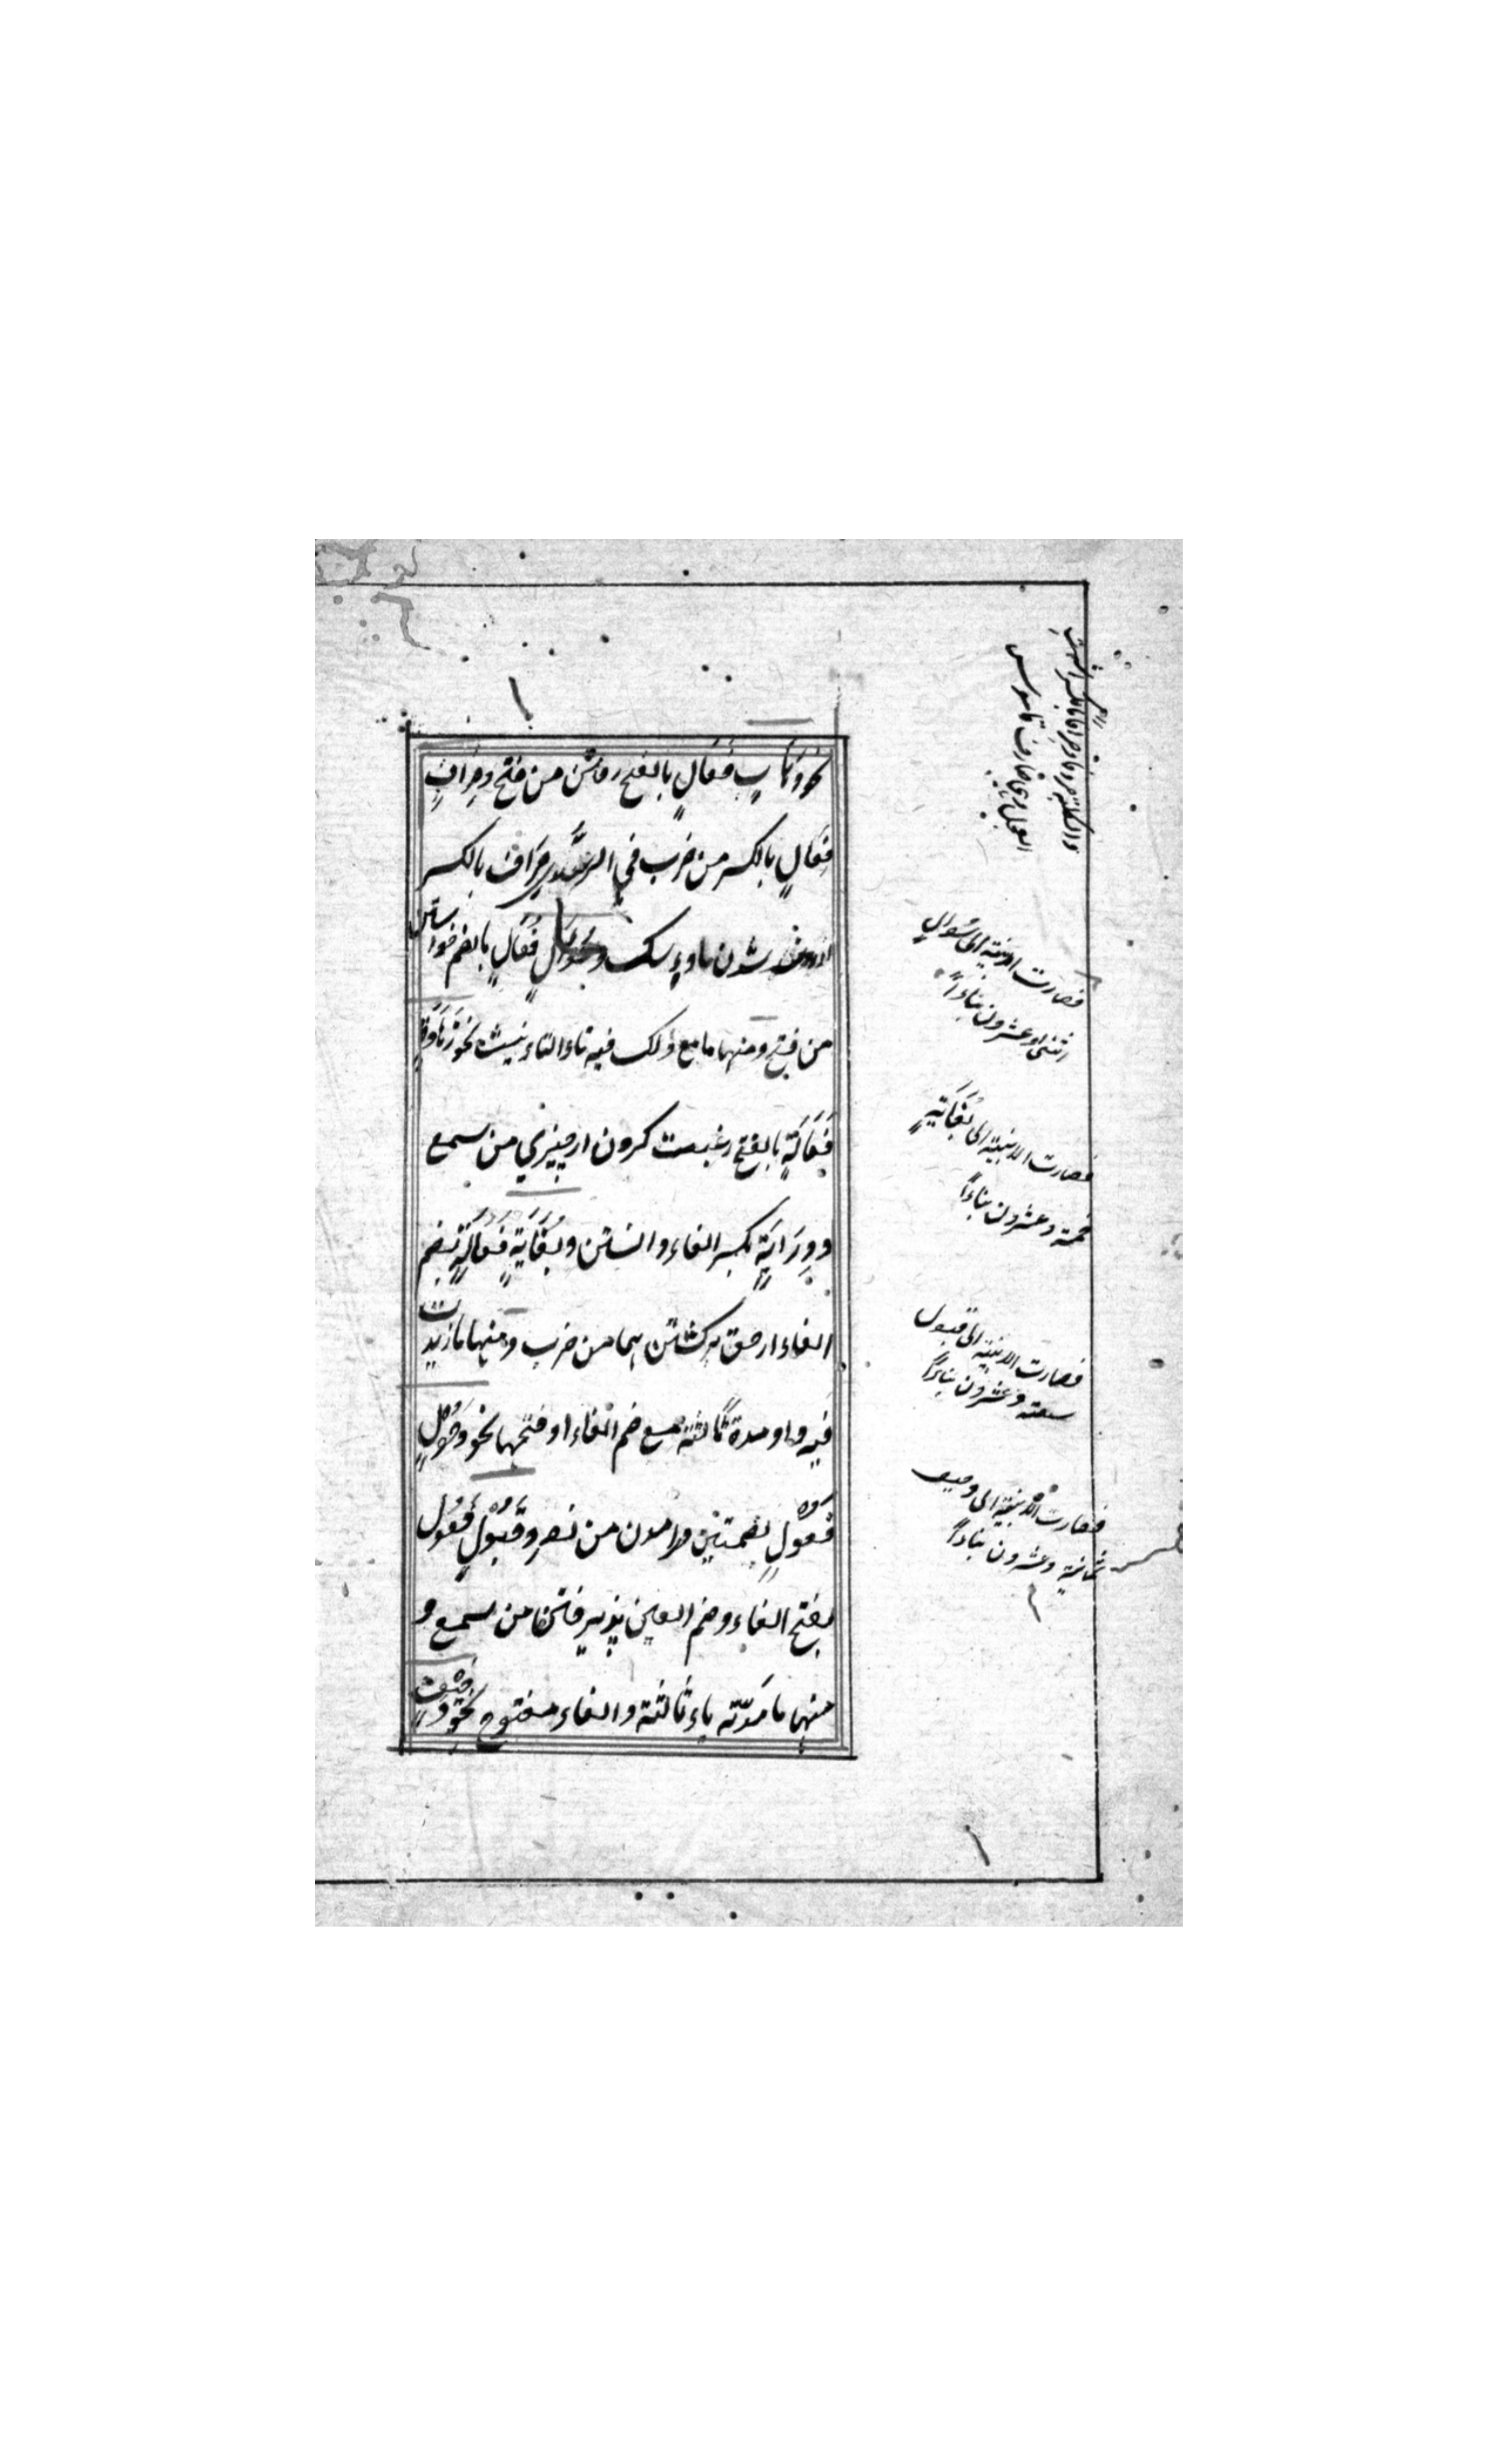 نحو ذَهَابٍ فَعَالٍ بالفتح رفتن من فتح وصِرَافٍ
فِعَالٍ بالكسر من ضرب في صِرَاف بالكسر
شدن ماده سك وسُؤَالٍ فُعَالٍ بالضم خواستن
من فتح ومنها ما مع ذلك فيه تاء التانيث نحو زَهَادَةٍ
فَعَالَةٍ بالفتح رغبت كردن از چيزي من سمع
ودِرَايَةٍ بكسر الفاء دانستن وبُغَايَةٍ فُعَالَةٍ بضم
الفاء از حق بركشتن هما من ضرب ومنها ما زيدت
فيه واو مدة ثالثة مع ضم الفاء او فتحها نحو دُخُولٍ
فُعُولٍ بضمتين درامدن من نصر وقَبُولٍ فَعُولٍ
بفتح الفاء وضم العين پذيرفتن من سمع و
منها ما مَدّته ياء ثالثة والفاء مفتوح نحو وَجِيفٍ
فصارت الابنية الى سُؤالٍ
اثنى وعشرون بناءً
فصارت الابنية الى بُغَايَةٍ
خمسة وعشرون بناءً
فصارت الابنية الى قبول
سبعة وعشرون بناءً
فصارت الابنية الى وجيف
ثمانية وعشرون بناءً